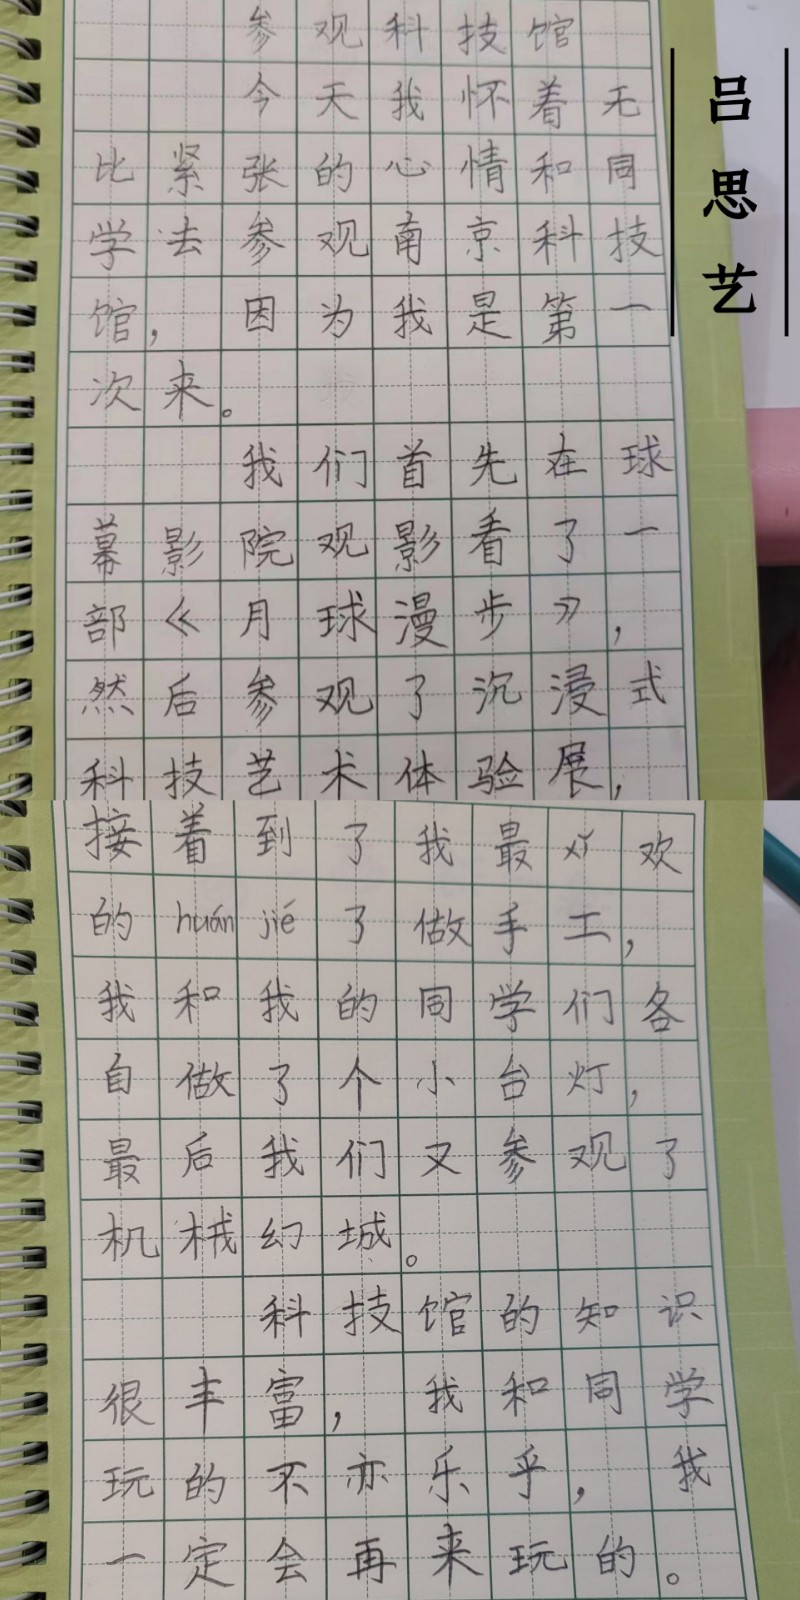 参观科技馆
今天我怀着无
比紧张的心情和同
学去参观南京科技
馆，因为我是第一
次来。
我们首先在球
幕影院观影看了一
部《月球漫步》，
然后参观了沉浸式
科技艺术体验展，
接着到了我最对欢
的huánjié了做手工，
我和我的同学们各
自做了个小台灯，
最后我们又参观了
机械幻城。
科技馆的知识
很丰富，我和同学
玩的不亦乐乎，我
一定会再来玩的。
吕思艺